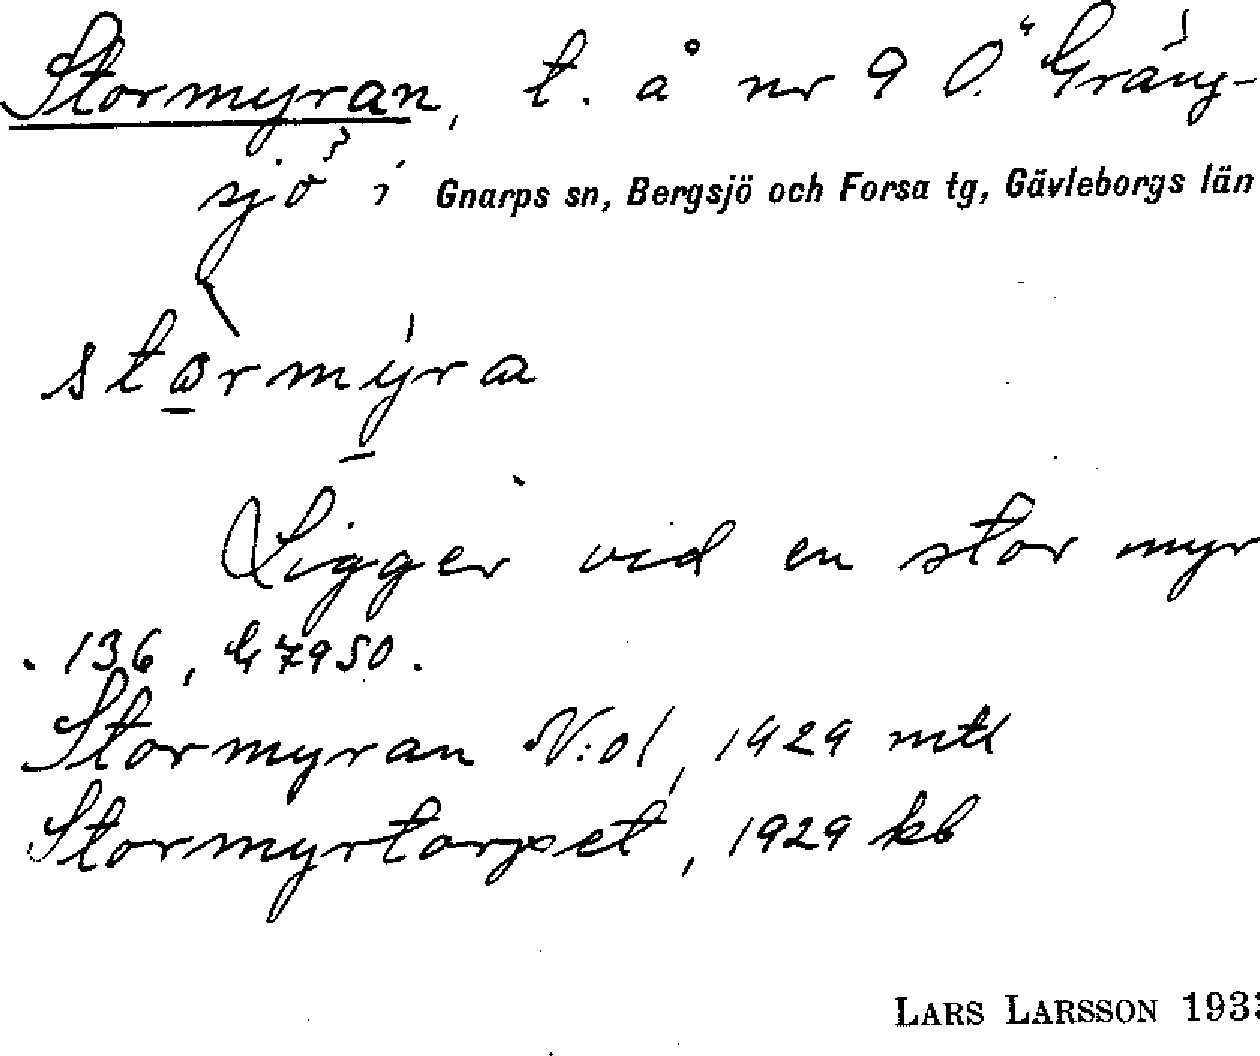 Stormyran, t. å nr 9 Ö. Gräng-
sjö i Gnarps sn, Bergsjö och Forsa tg, Gävleborgs län
stormýra
Ligger vid en stor myr
. 136, G 7950.
Stormyran N:o1, 1929 mtl
Stormyrtorpet, 1929 kb
LARS LARSSON 1933